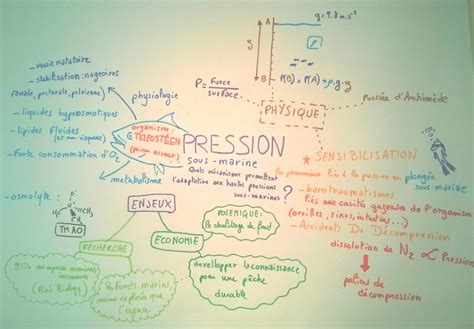 - vessie natatoire
- stabilisation : nageoires
canale, pectorale, pelvienne)
physiologie
- liquides hyposmotiques
- lipides fluides
- Forte consommation d'O₂
métabolisme
- osmolyte :
CH₃
TMAO
organisme
TÉLÉOSTÉEN
(poisson osseux)
PRESSION
sous-marine
Quels mécanismes permettent
l'adaptation aux hautes pressions
sous-marines ?
P = Force
surface
A
B
g = 9.8 m.s⁻²
P(B) = P(A) + ρ.g.z
PHYSIQUE
Poussée d'Archimède
SENSIBILISATION
les phénomènes liés à la pression en plongée
sous-marine
- barotraumatismes
liés aux cavités gazeuses de l'organisme
(oreilles, sinus, intestins...)
- Accidents De Décompression
dissolution de N₂ ∝ Pression
paliers de
décompression
ENJEUX
RECHERCHE
ECONOMIE
POLEMIQUE :
le chalutage de fond
developper la connaissance
pour une pêche
durable
91% des espèces marines
inconnues
(PLoS Biology)
les fonds marins,
moins explorés que
l'espace